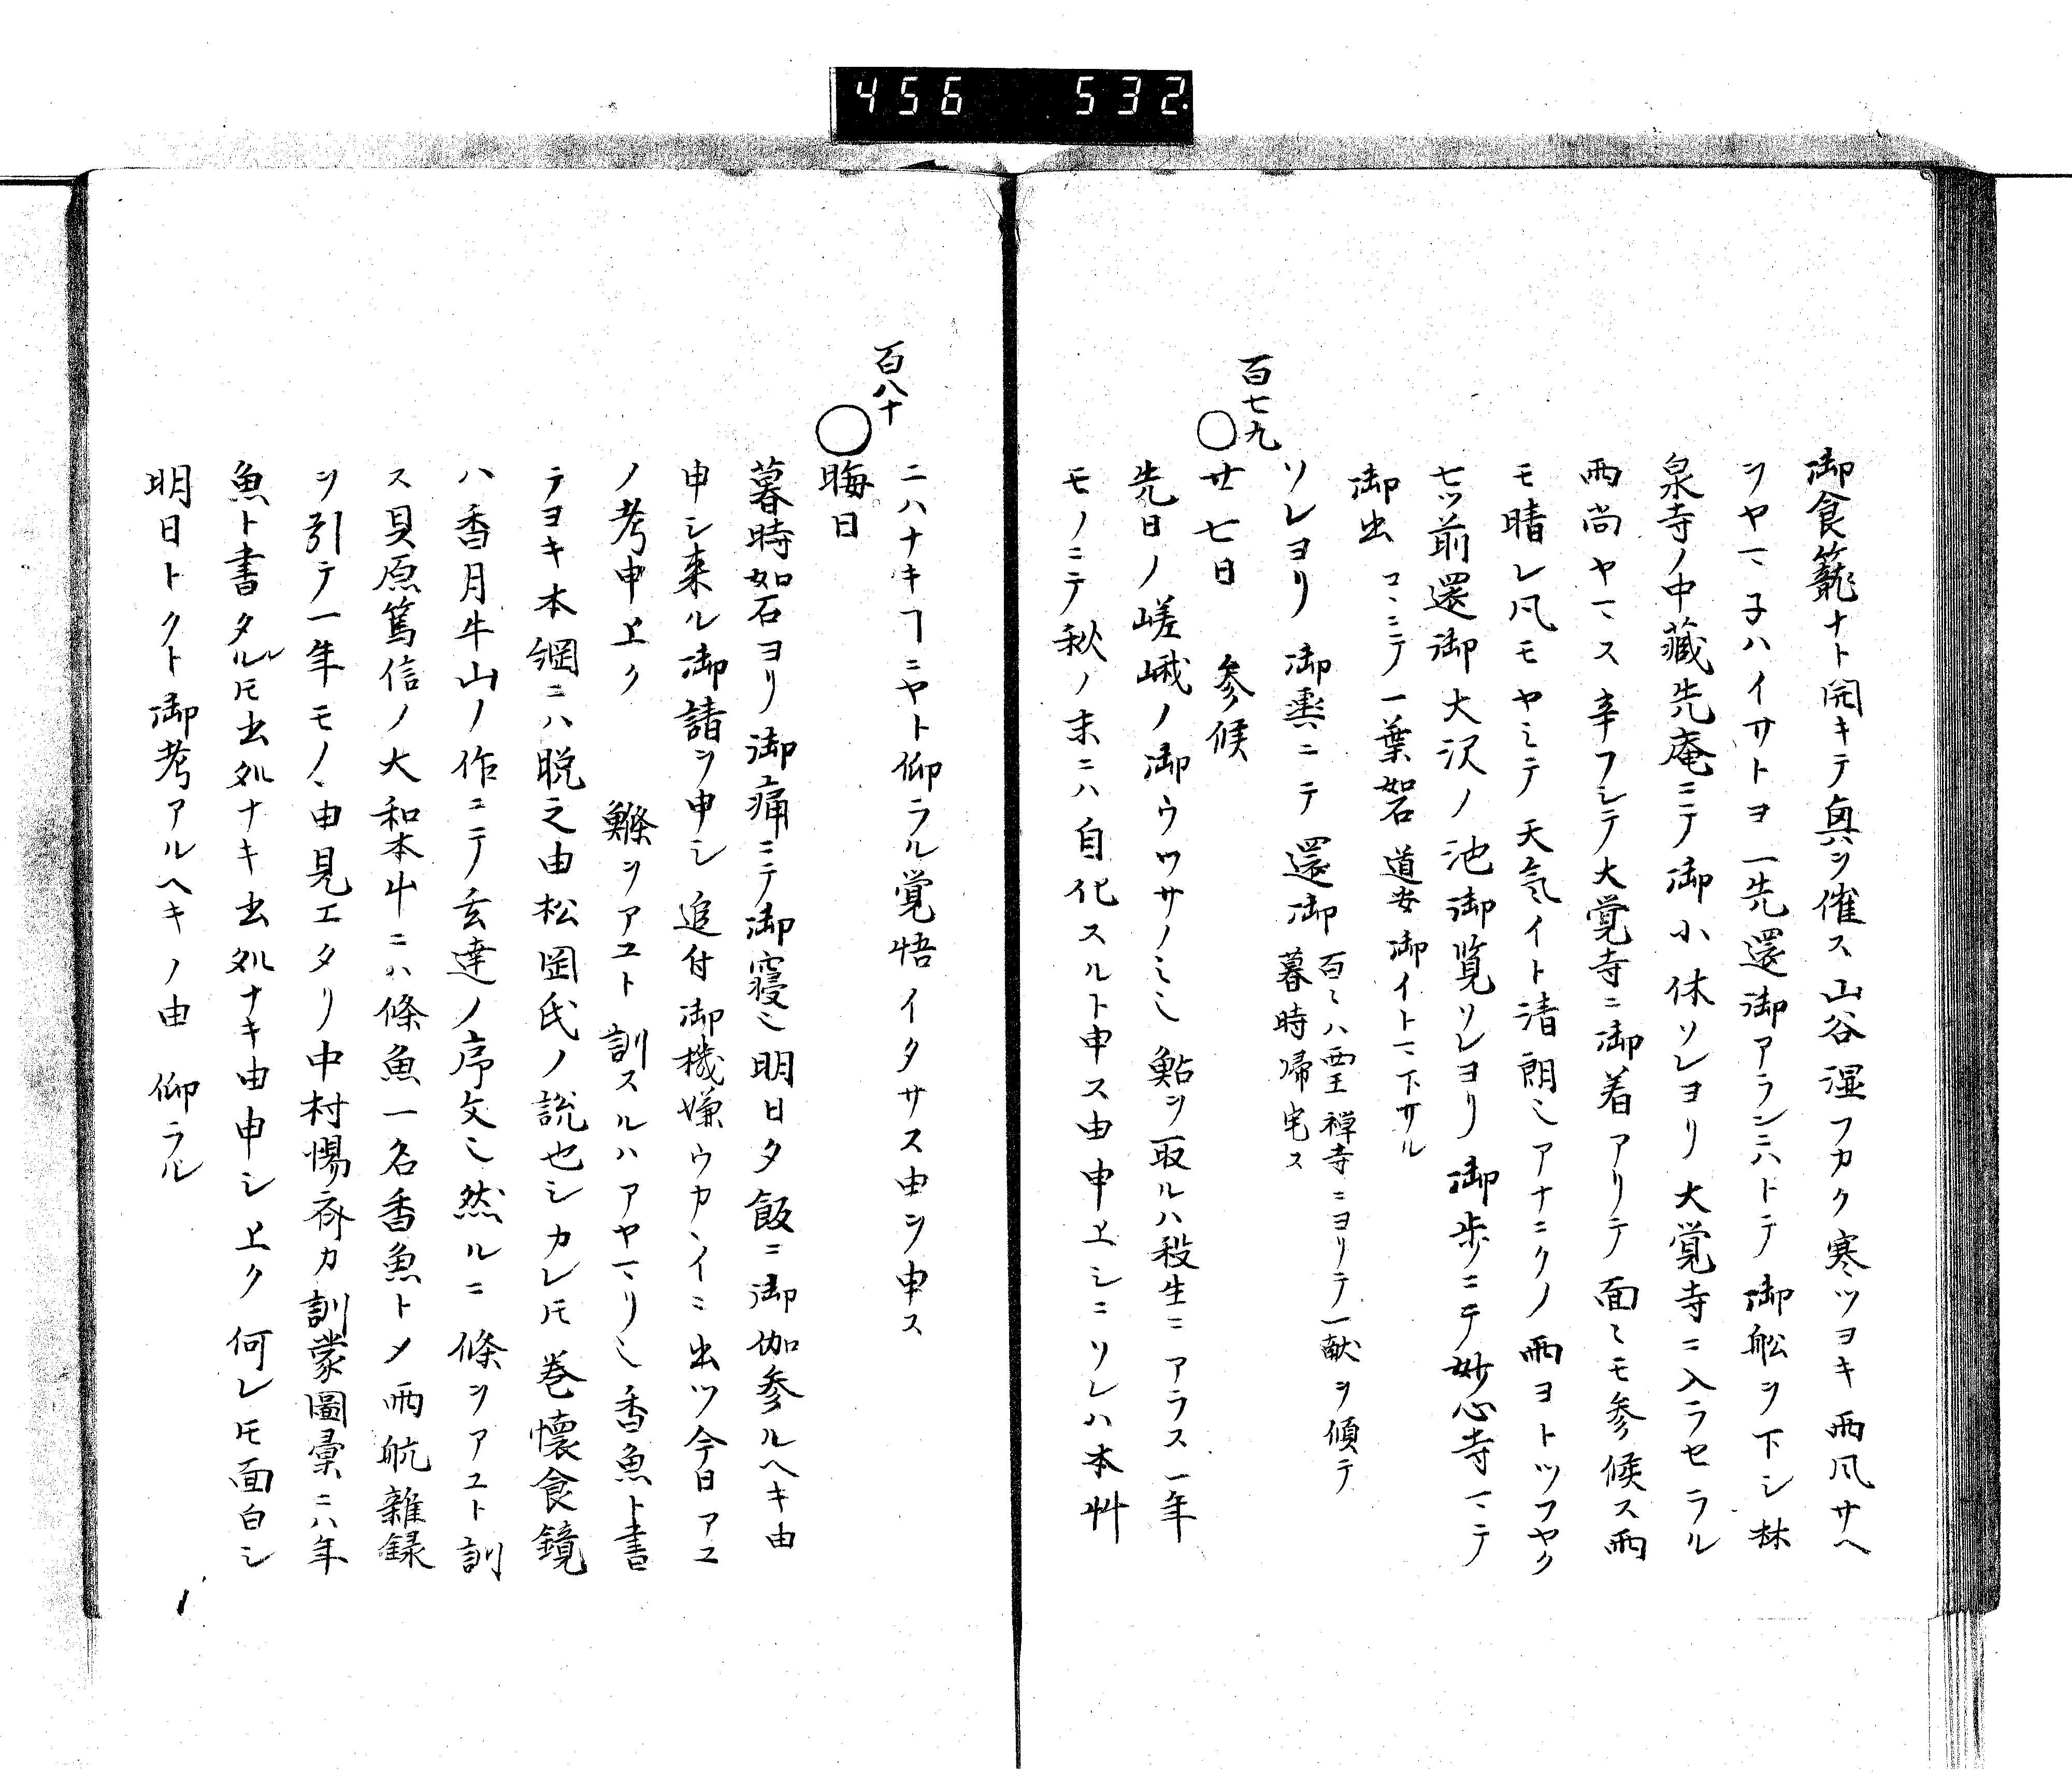 456 532.
御食籠ナト開キテ興ヲ催ス山谷湿フカク寒ツヨキ雨風サヘ
ヲヤマ子ハイサトヨ一先還御アランニハトテ御舩ヲ下シ林
泉寺ノ中藏先庵ニテ御小休ソレヨリ大覚寺ニ入ラセラル
雨尚ヤマス辛フシテ大覚寺ニ御着アリテ面〻モ参候ス雨
モ晴レ凨モヤミテ天氣イト清朗ミアナニクノ雨ヨトツフヤク
七ツ前還御大沢ノ池御覧ソレヨリ御歩ニテ妙心寺マテ
御出 コヽニテ一葉 道安御イトマ下サル
ソレヨリ 御輿ニテ還御 百〻ハ 禅寺ニヨリテ一献ヲ傾テ
暮時帰宅ス
百七九
〇廿七日 参候
先日ノ嵯峨ノ御ウワサノミミ鮎ヲ取ルハ殺生ニアラス一年
モノニテ秋ノ末ニハ自化スルト申ス由申上シニソレハ本艸
ニハナキヿニヤト仰ラル覚悟イタサス由ヲ申ス
百八十
〇晦日
暮時如石ヨリ御痛ニテ御寝ミ明日夕飯ニ御伽参ルヘキ由
申シ来ル御請ヲ申シ追付御機嫌ウカヽイニ出ツ今日アユ
ノ考申上ク 鰷ヲアユト訓スルハアヤマリミ香魚ト書
テヨキ本綱ニハ脱之由松岡氏ノ説也シカレ𪜈巻懐食鏡
ハ香月牛山ノ作ニテ玄達ノ序文ミ然ルニ條ヲアユト訓
ス貝原篤信ノ大和本艸ニハ條魚一名香魚トメ雨航雜録
ヲ引テ一年モノヽ由見エタリ中村惕斎カ訓蒙圖彙ニハ年
魚ト書タル𪜈出処ナキ出処ナキ由申シ上ク何レ𪜈面白シ
明日トクト御考アルヘキノ由 仰ラル